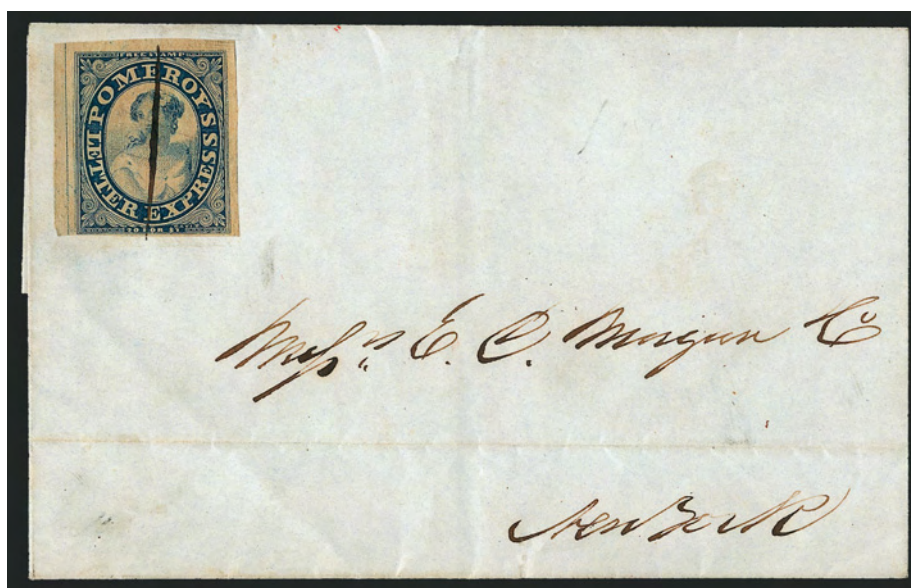 FREE STAMP
POMEROY'S
LETTER EXPRESS
20 FOR $1
Mess.rs E. D. Morgan Co
New York